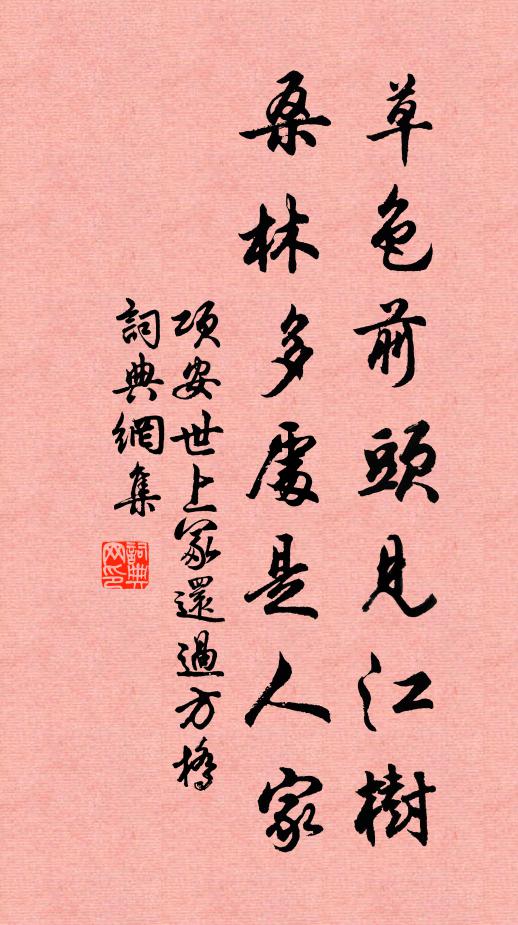 草色前頭見江樹
桑林多處是人家
項安世上冢還過方橋
詞典網集
詞典網印